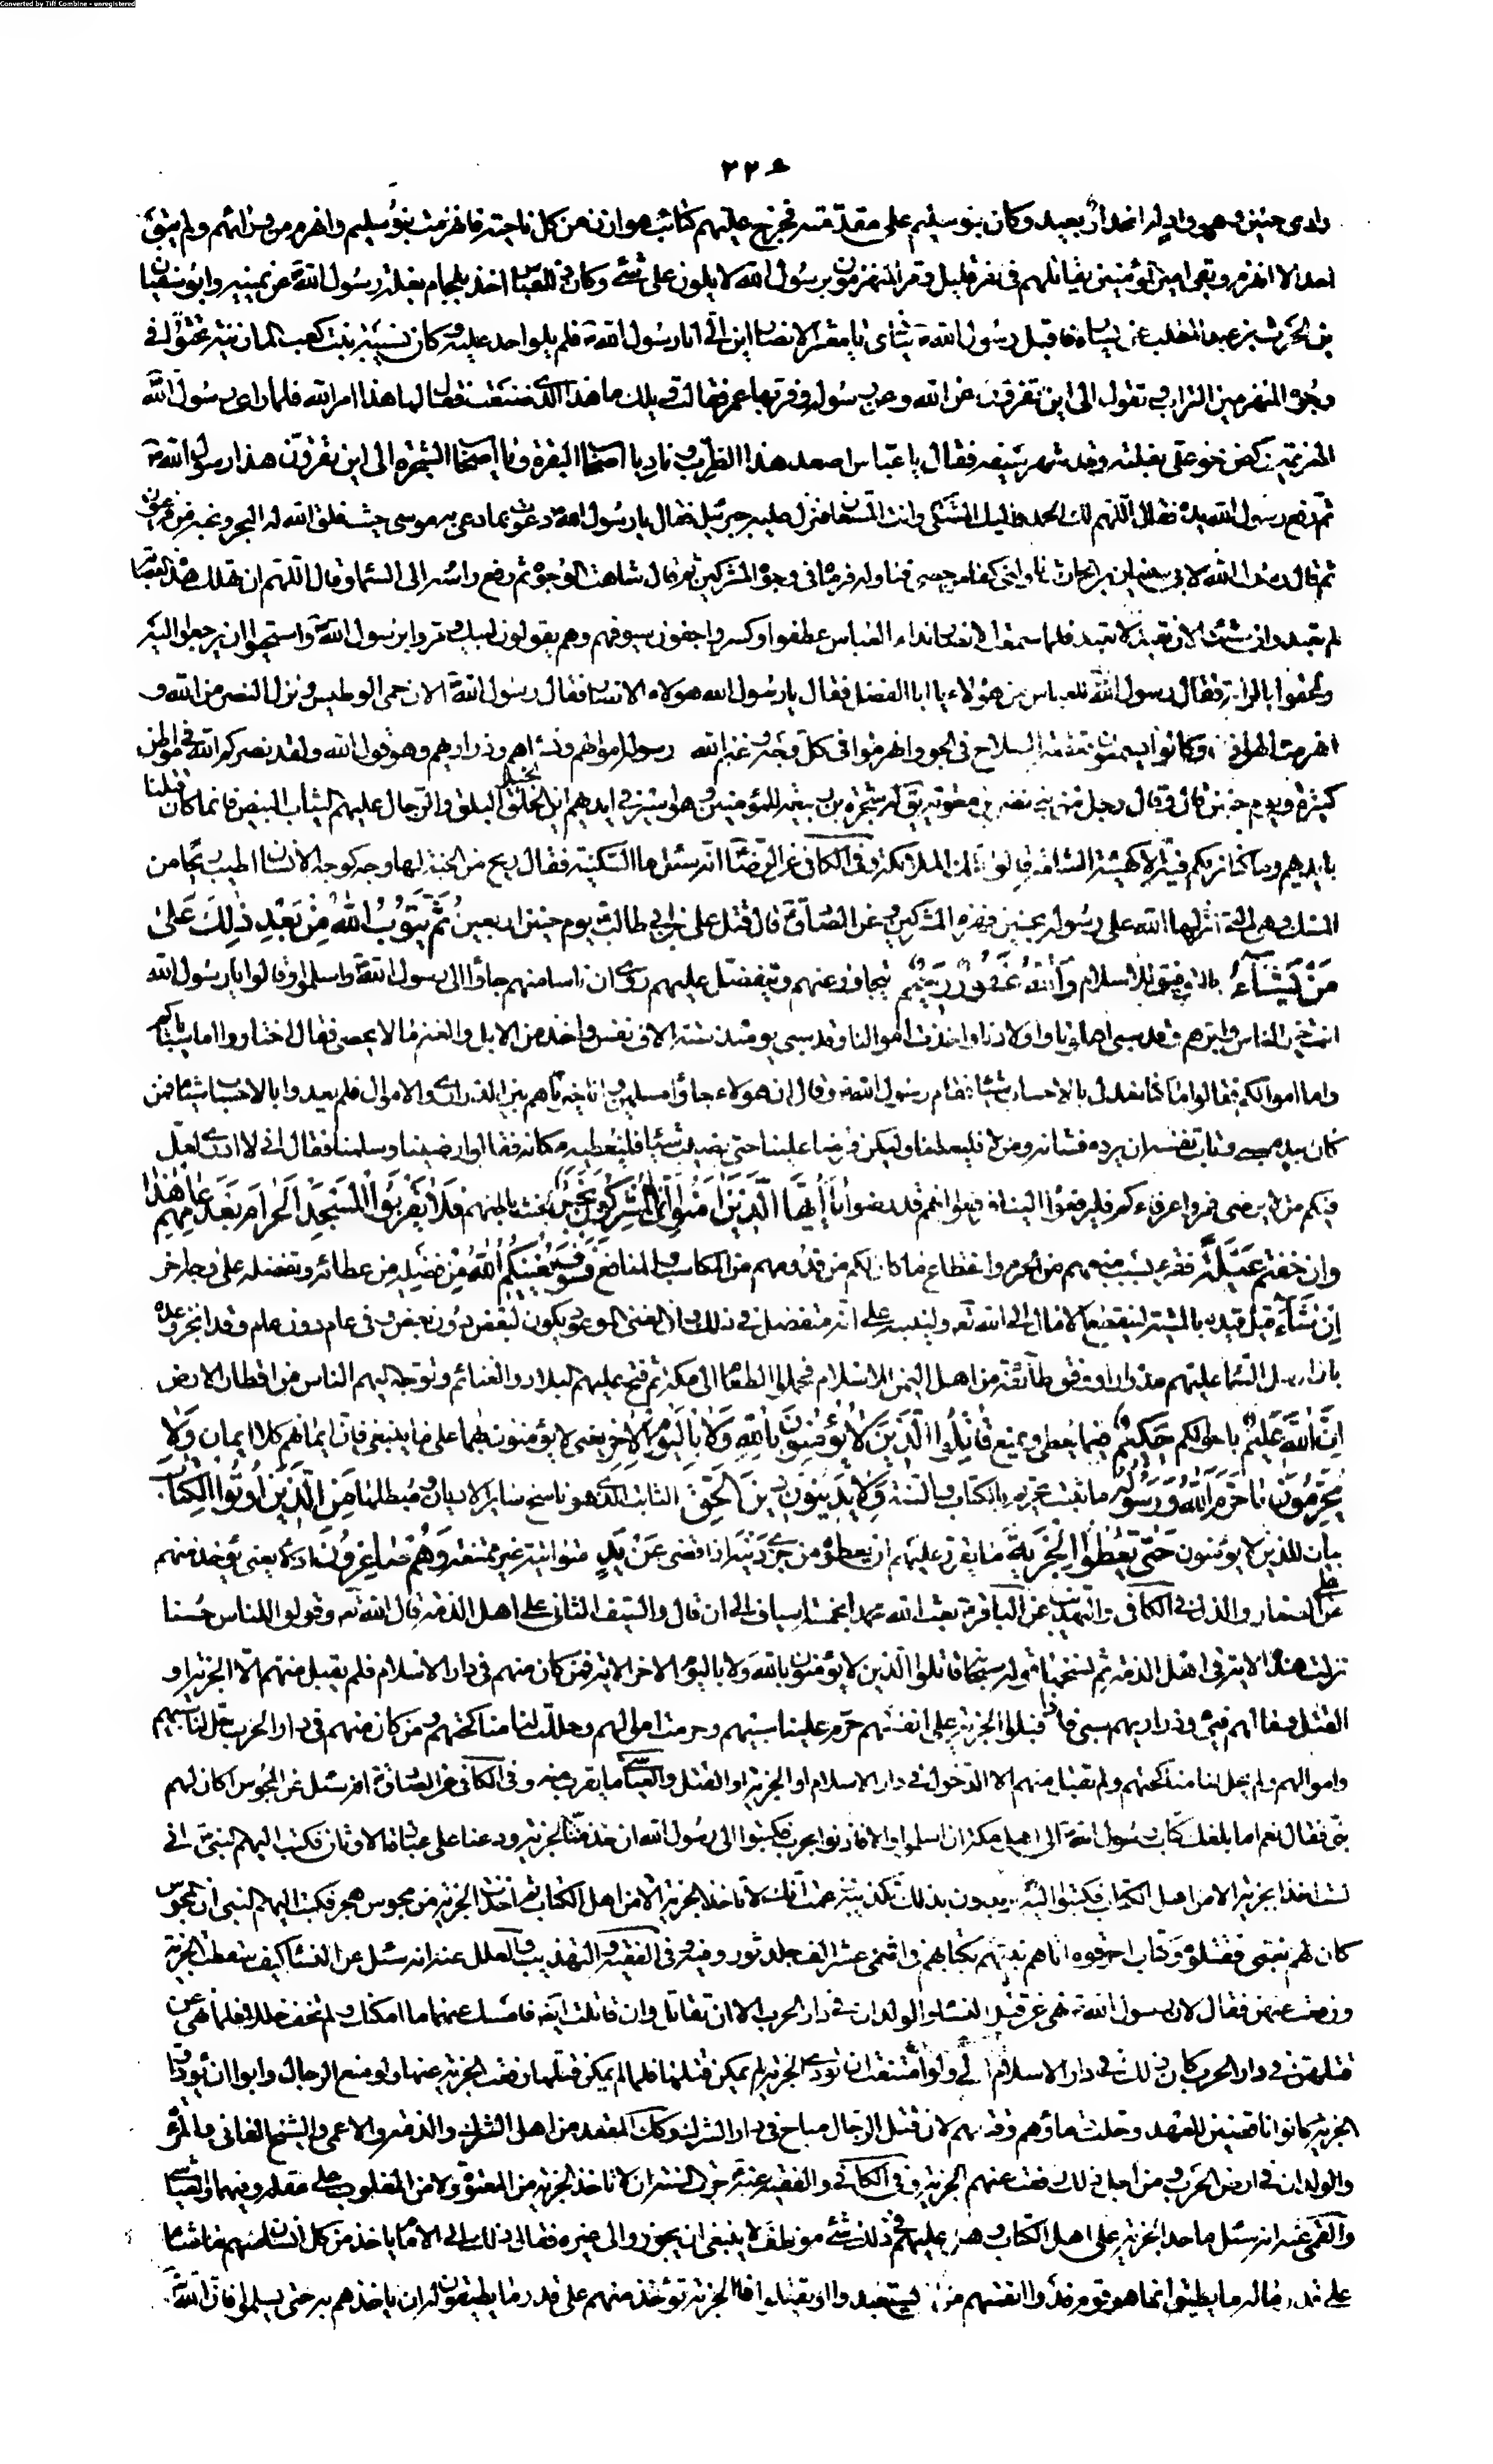 Converted by Tiff Combine - unregistered
٢٢٥
وادى حنين وهو واد له انحدار بعيد وكان بنو سليم على مقدمته فخرج عليهم كتائب هوازن من كل ناحية فانهزمت بنو سليم وانهزم من ورائهم ولم يبق
احد الا انهزم وبقى امير المؤمنين يقاتلهم فى نفر قليل ومر المنهزمون برسول الله لا يلوون على شئ وكان العباس اخذ بلجام بغلة رسول الله عن يمينه وابو سفيان
بن الحرث بن عبد المطلب عن يساره فاقبل رسول الله ينادى يا معشر الانصار اين الى انا رسول الله فلم يلو احد عليه وكان نسيبة بنت كعب المازنية تحثو فى
وجوه المنهزمين التراب وتقول الى اين تفرون عن الله وعن رسوله ومر بها عمر فقالت ويلك ما هذا الذى صنعت فقال لها هذا امر الله فلما راى رسول الله
الهزيمة ركض نحو على بغلته وقد شهر سيفه فقال يا عباس اصعد هذا الظرب وناد يا اصحاب البقرة ويا اصحاب الشجرة الى اين تفرون هذا رسول الله
ثم رفع رسول الله يده فقال اللهم لك الحمد واليك المشتكى وانت المستعان فنزل عليه جبرئيل فقال يا رسول الله دعوت بما دعى به موسى حيث فلق الله له البحر ونجاه من فرعون
ثم قال رسول الله لابى سفيان بن الحارث ناولنى كفا من حصى فناوله فرماه فى وجوه المشركين ثم قال شاهت الوجوه ثم رفع راسه الى السماء وقال اللهم ان تهلك هذه العصابة
لم تعبد وان شئت الا تعبد لا تعبد فلما سمعت الانصار نداء العباس عطفوا وكسروا جفون سيوفهم وهم يقولون لبيك ومروا برسول الله واستحيوا ان يرجعوا اليه
ولحقوا بالراية فقال رسول الله للعباس من هؤلاء يا ابا الفضل فقال يا رسول الله هؤلاء الانصار فقال رسول الله الان حمى الوطيس ونزل النصر من الله و
انهزمت هوازن وكانوا يسمعون قعقعة السلاح فى الجو وانهزموا فى كل وجه وغنم الله رسوله اموالهم ونساءهم وذراريهم وهو قول الله ولقد نصركم الله فى مواطن
كثيرة ويوم حنين قال وقال رجل من بنى نضر بن معوية يق له شجرة بن ربيعة للمؤمنين وهو اسير فى ايديهم اين الخيل البلق والرجال عليهم الثياب البيض فانما كان قتلنا
بايديهم وما كنا نريكم فيهم الا كهيئة الشامة قالوا تلك الملائكة وفى الكافى عن الرضا انه سئل ما السكينة فقال ريح من الجنة لها وجه كوجه الانسان اطيب ريحا من
المسك وهى التى انزلها الله على رسوله بحنين فهزم المشركين وعن الصادق قال قتل على بن ابى طالب يوم حنين اربعين ثُمَّ يَتُوبُ اللهُ مِنْ بَعْدِ ذٰلِكَ عَلىٰ
مَنْ يَشاءُ بالتوفيق للاسلام وَاللهُ غَفُورٌ رَحِيمٌ يتجاوز عنهم ويتفضل عليهم روى ان ناسا منهم جاؤا الى رسول الله واسلموا وقالوا يا رسول الله
انت خير الناس وابرهم وقد سبى اهلونا واولادنا واخذت اموالنا وقد سبى يومئذ ستة الاف نفس واخذ من الابل والغنم ما لا يحصى فقال اختاروا اما سباياكم
واما اموالكم فقالوا ما كنا نعدل بالاحساب شيئا فقام رسول الله وقال ان هؤلاء جاؤا مسلمين وانا خيرناهم بين الذرارى والاموال فلم يعدلوا بالاحساب شيئا فمن
كان بيده سبى وطابت نفسه ان يرده فشانه ومن لا فليعطنا وليكن قرضا علينا حتى نصيب شيئا فليعطيه مكانه فقالوا رضينا وسلمنا فقال انى لا ادرى لعل
فيكم من لا يرضى فمروا عرفاءكم فليرفعوا الينا فرفعوا انهم قد رضوا يا أَيُّهَا الَّذِينَ آمَنُوا إِنَّمَا الْمُشْرِكُونَ نَجَسٌ لخبث باطنهم فَلا يَقْرَبُوا الْمَسْجِدَ الْحَرامَ بَعْدَ عامِهِمْ هٰذا
وَإِنْ خِفْتُمْ عَيْلَةً فقرا بسبب منعهم من الحرم وانقطاع ما كان لكم من قدومهم من المكاسب والمنافع فَسَوْفَ يُغْنِيكُمُ اللهُ مِنْ فَضْلِهِ من عطائه وتفضله على وجه اخر
إِنْ شاءَ قيل قيده بالمشية لينقطع الامال الى الله تعالى ولينبه على انه متفضل فى ذلك وان الغنى الموعود يكون لبعض دون بعض وفى عام دون عام وقد انجز وعده
بان ارسل السماء عليهم مدرارا ووفق طائفة من اهل اليمن للاسلام فحملوا الطعام الى مكة ثم فتح عليهم البلاد والغنائم وتوجه اليهم الناس من اقطار الارض
إِنَّ اللهَ عَلِيمٌ باحوالكم حَكِيمٌ فيما يعطى ويمنع قاتِلُوا الَّذِينَ لا يُؤْمِنُونَ بِاللهِ وَلا بِالْيَوْمِ الْآخِرِ يعنى لا يؤمنون بهما على ما ينبغى فان ايمانهم كلا ايمان وَلا
يُحَرِّمُونَ ما حَرَّمَ اللهُ وَرَسُولُهُ ما ثبت تحريمه بالكتاب والسنة وَلا يَدِينُونَ دِينَ الْحَقِّ الثابت الذى هو ناسخ سائر الاديان ومبطلها مِنَ الَّذِينَ أُوتُوا الْكِتابَ
بيان للذين لا يؤمنون حَتّىٰ يُعْطُوا الْجِزْيَةَ ما يقرر عليهم ان يعطوه من جزى دينه اذا قضى عَنْ يَدٍ مواتية غير ممتنعة وَهُمْ صاغِرُونَ اذلاء يعنى تؤخذ منهم
على الصغار والذل فى الكافى والتهذيب عن الباقر بعث الله محمدا بخمسة اسياف الى ان قال والسيف الثانى على اهل الذمة قال الله تعالى وقولوا للناس حسنا
نزلت هذه الاية فى اهل الذمة ثم نسخها قوله سبحانه قاتلوا الذين لا يؤمنون بالله ولا باليوم الاخر الاية فمن كان منهم فى دار الاسلام فلم يقبل منهم الا الجزية او
القتل ومالهم فئ وذراريهم سبى فاذا قبلوا الجزية على انفسهم حرم علينا سبيهم وحرمت اموالهم وحلت لنا مناكحتهم ومن كان منهم فى دار الحرب حل لنا سبيهم
واموالهم ولم يحل لنا مناكحتهم ولم تقبل منهم الا الدخول فى دار الاسلام او الجزية او القتل والعياشى ما يقرب منه وفى الكافى عن الصادق انه سئل عن المجوس اكان لهم
نبى فقال نعم اما بلغك كتاب رسول الله الى اهل مكة ان اسلموا والا فاذنوا بحرب فكتبوا الى رسول الله ان خذ منا الجزية ودعنا على عبادة الاوثان فكتب اليهم النبى انى
لست اخذ الجزية الا من اهل الكتاب فكتبوا اليه يريدون بذلك تكذيبه زعمت انك لا تاخذ الجزية الا من اهل الكتاب ثم اخذت الجزية من مجوس هجر فكتب اليهم النبى ان المجوس
كان لهم نبى فقتلوه وكتاب احرقوه اتاهم نبيهم بكتابهم فى اثنى عشر الف جلد ثور وفيه وفى الفقيه والتهذيب والعلل عنه انه سئل عن النساء كيف سقطت الجزية
ورفعت عنهن فقال لان رسول الله نهى عن قتل النساء والولدان فى دار الحرب الا ان تقاتل وان قاتلت ايضا فامسك عنها ما امكنك ولم تخف خللا فلما نهى عن
قتلهن فى دار الحرب كان ذلك فى دار الاسلام اولى ولو امتنعت ان تؤدى الجزية لم يمكن قتلها فلما لم يمكن قتلها رفعت الجزية عنها ولو منع الرجال وابوا ان يؤدوا
الجزية كانوا ناقضين للعهد وحلت دماؤهم وقتلهم لان قتل الرجال مباح فى دار الشرك وكذلك المقعد من اهل الشرك والذمة والاعمى والشيخ الفانى والمرأة
والولدان فى ارض الحرب ومن اجل ذلك رفعت عنهم الجزية وفى الكافى والفقيه عنه جرت السنة ان لا تاخذ الجزية من المعتوه ولا من المغلوب على عقله وفيهما والعياشى
والقمى عنه انه سئل ما حد الجزية على اهل الكتاب وهل عليهم فى ذلك شئ موظف لا ينبغى ان يجوزوا الى غيره فقال ذلك الى الامام ياخذ من كل انسان منهم ما شاء
على قدر ماله ما يطيق انما هو قوم فدوا انفسهم من ان يستعبدوا او يقتلوا فالجزية تؤخذ منهم على قدر ما يطيقون له ان ياخذهم به حتى يسلموا فان الله